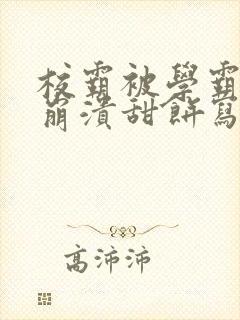 校霸被學霸
崩潰甜餅寫
高沛沛